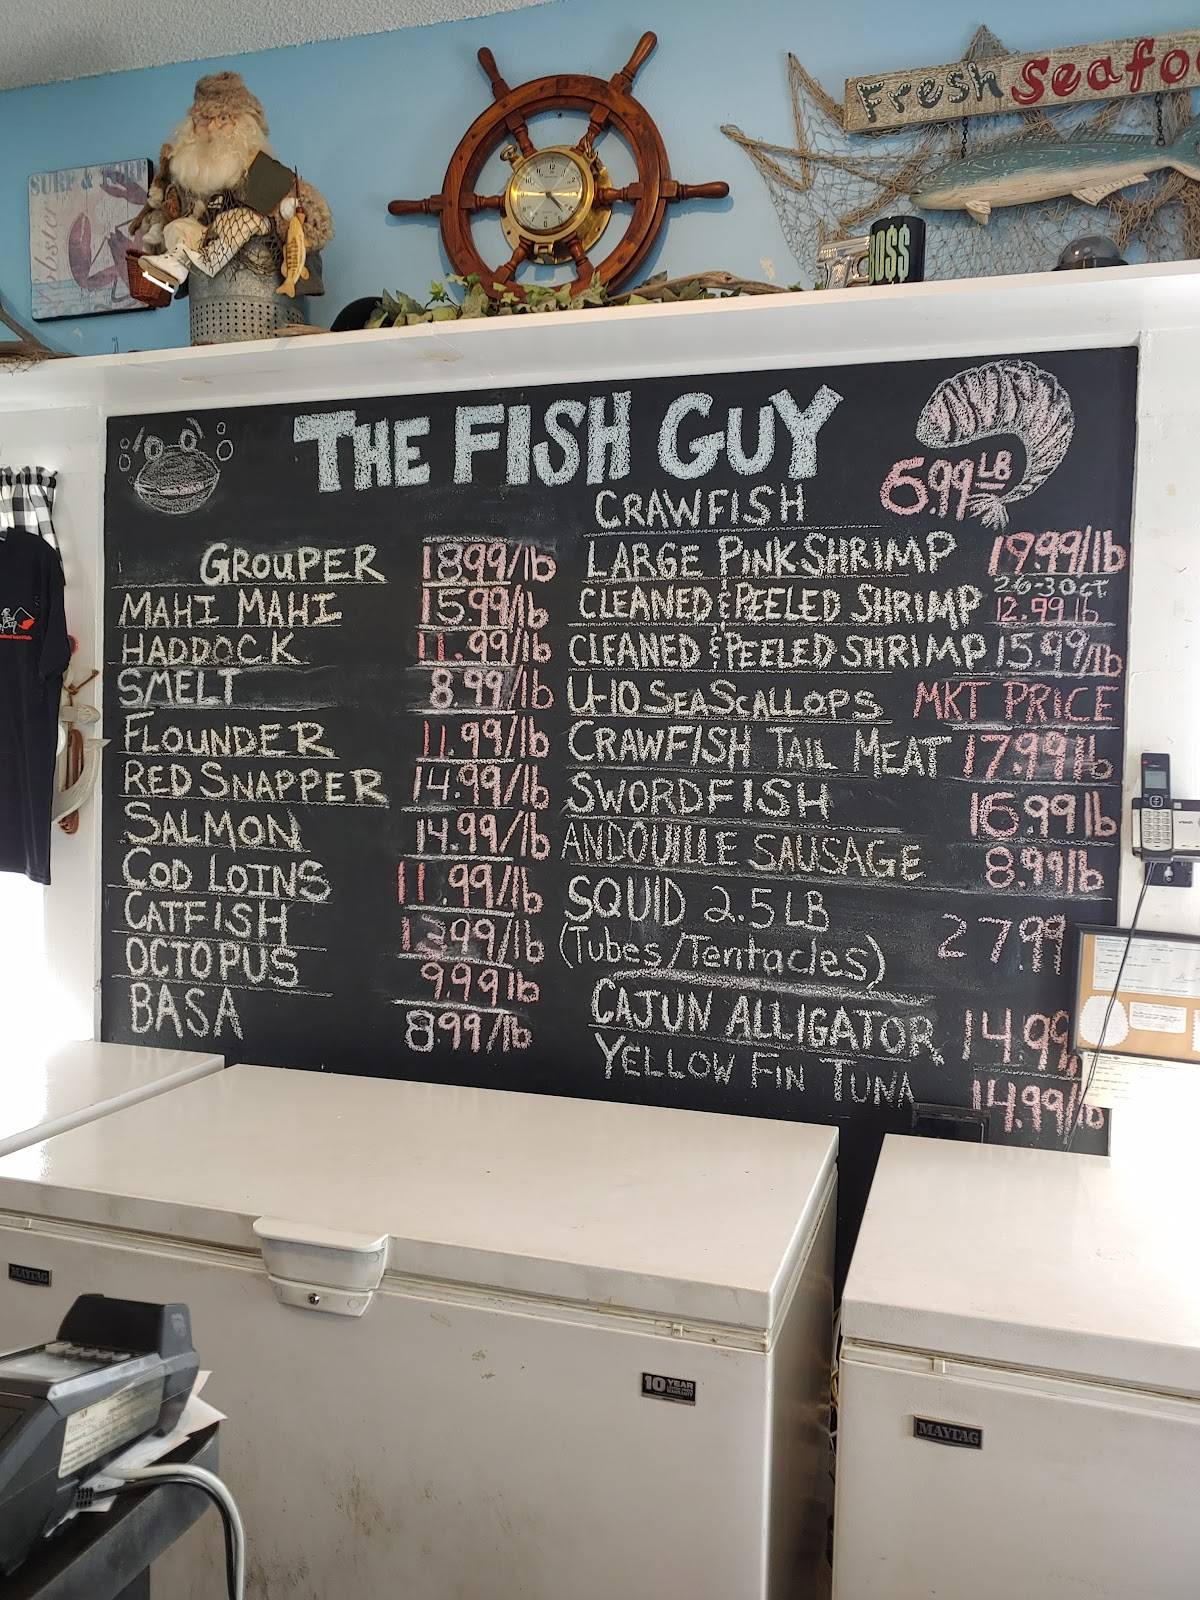 SURF & TURF
Lobster
Fresh Seafoo
BO$$
THE FISH GUY
CRAWFISH 6.99 LB
GROUPER 18.99/lb
MAHI MAHI 15.99/lb
HADDOCK 11.99/lb
SMELT 8.99/lb
FLOUNDER 11.99/lb
RED SNAPPER 14.99/lb
SALMON 14.99/lb
COD LOINS 11.99/lb
CATFISH 12.99/lb
OCTOPUS 9.99lb
BASA 8.99/lb
LARGE PINK SHRIMP 19.99/lb
26-30CT
CLEANED & PEELED SHRIMP 12.99lb
CLEANED & PEELED SHRIMP 15.99/lb
U-10 SEA SCALLOPS MKT PRICE
CRAWFISH TAIL MEAT 17.99lb
SWORDFISH 16.99lb
ANDOUILLE SAUSAGE 8.99lb
SQUID 2.5LB
(Tubes/Tentacles) 27.99
CAJUN ALLIGATOR 14.99
YELLOW FIN TUNA 14.99/lb
MAYTAG
10 YEAR
MAYTAG